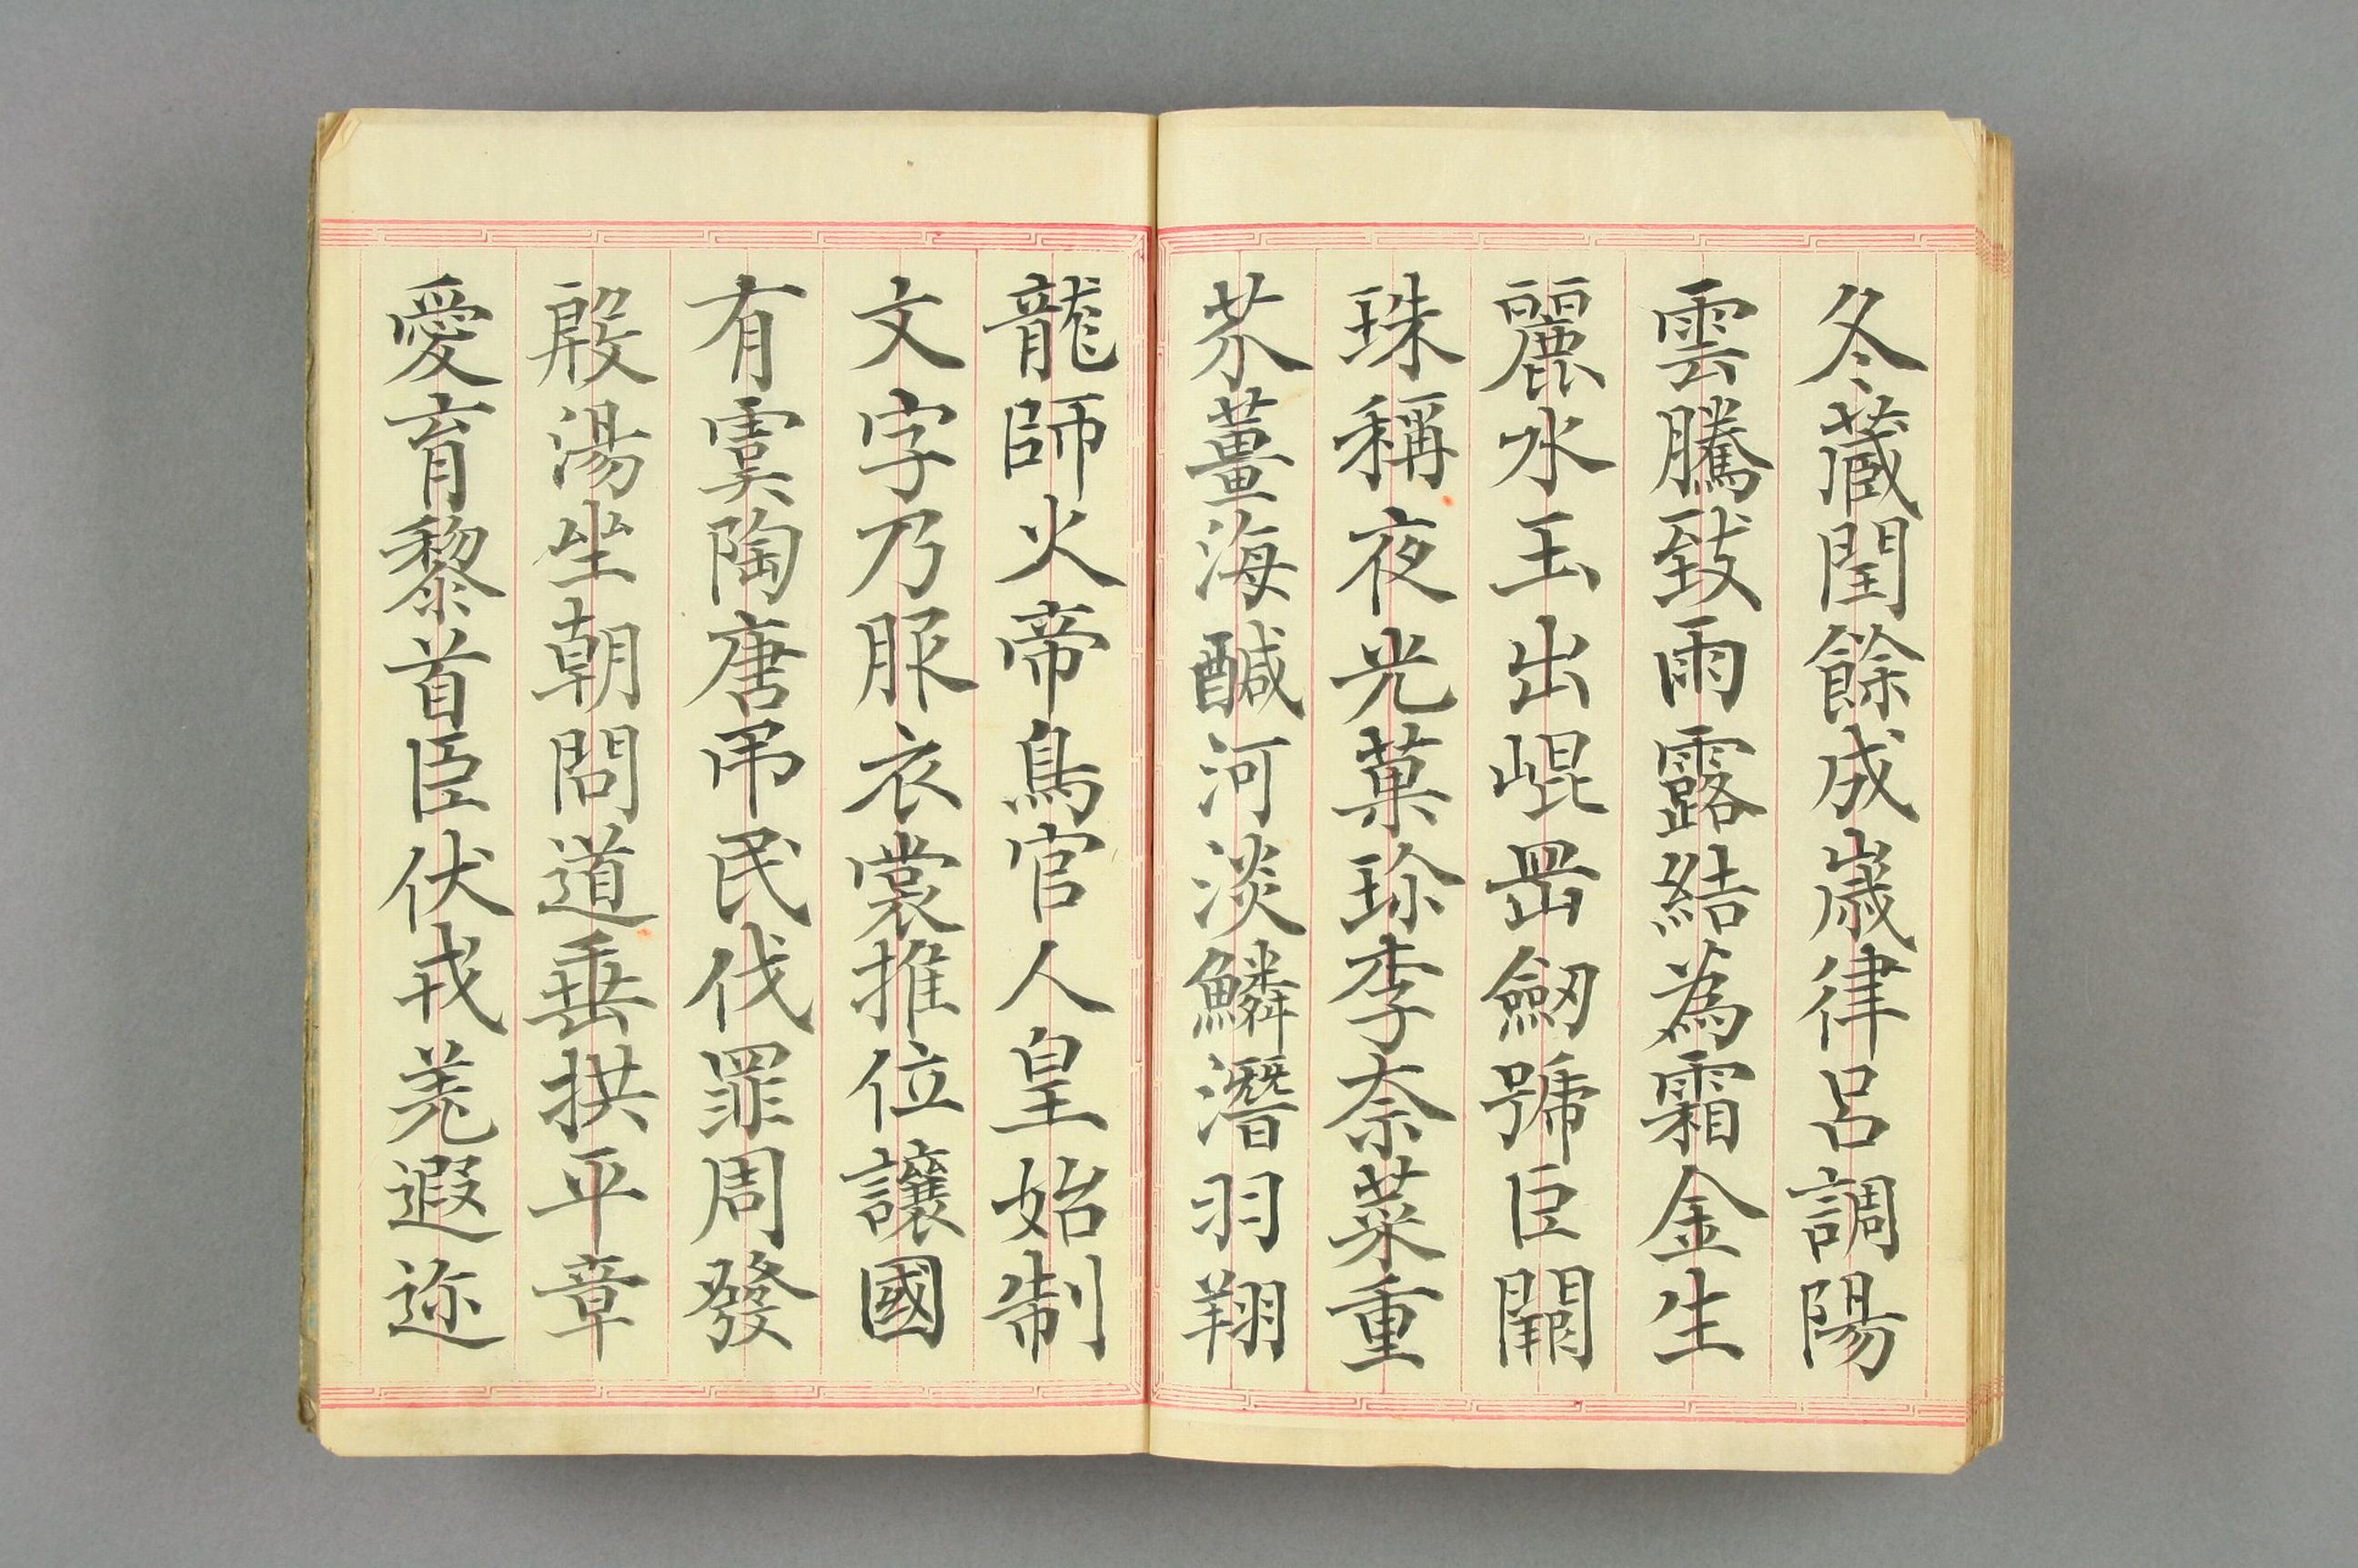 冬藏閏餘成歲律呂調陽
雲騰致雨露結為霜金生
麗水玉出崐罡劔號巨闕
珠稱夜光菓珍李柰菜重
芥薑海醎河淡鱗潛羽翔
龍師火帝鳥官人皇始制
文字乃服衣裳推位讓國
有虞陶唐弔民伐罪周發
殷湯坐朝問道垂拱平章
愛育黎首臣伏戎羌遐迩